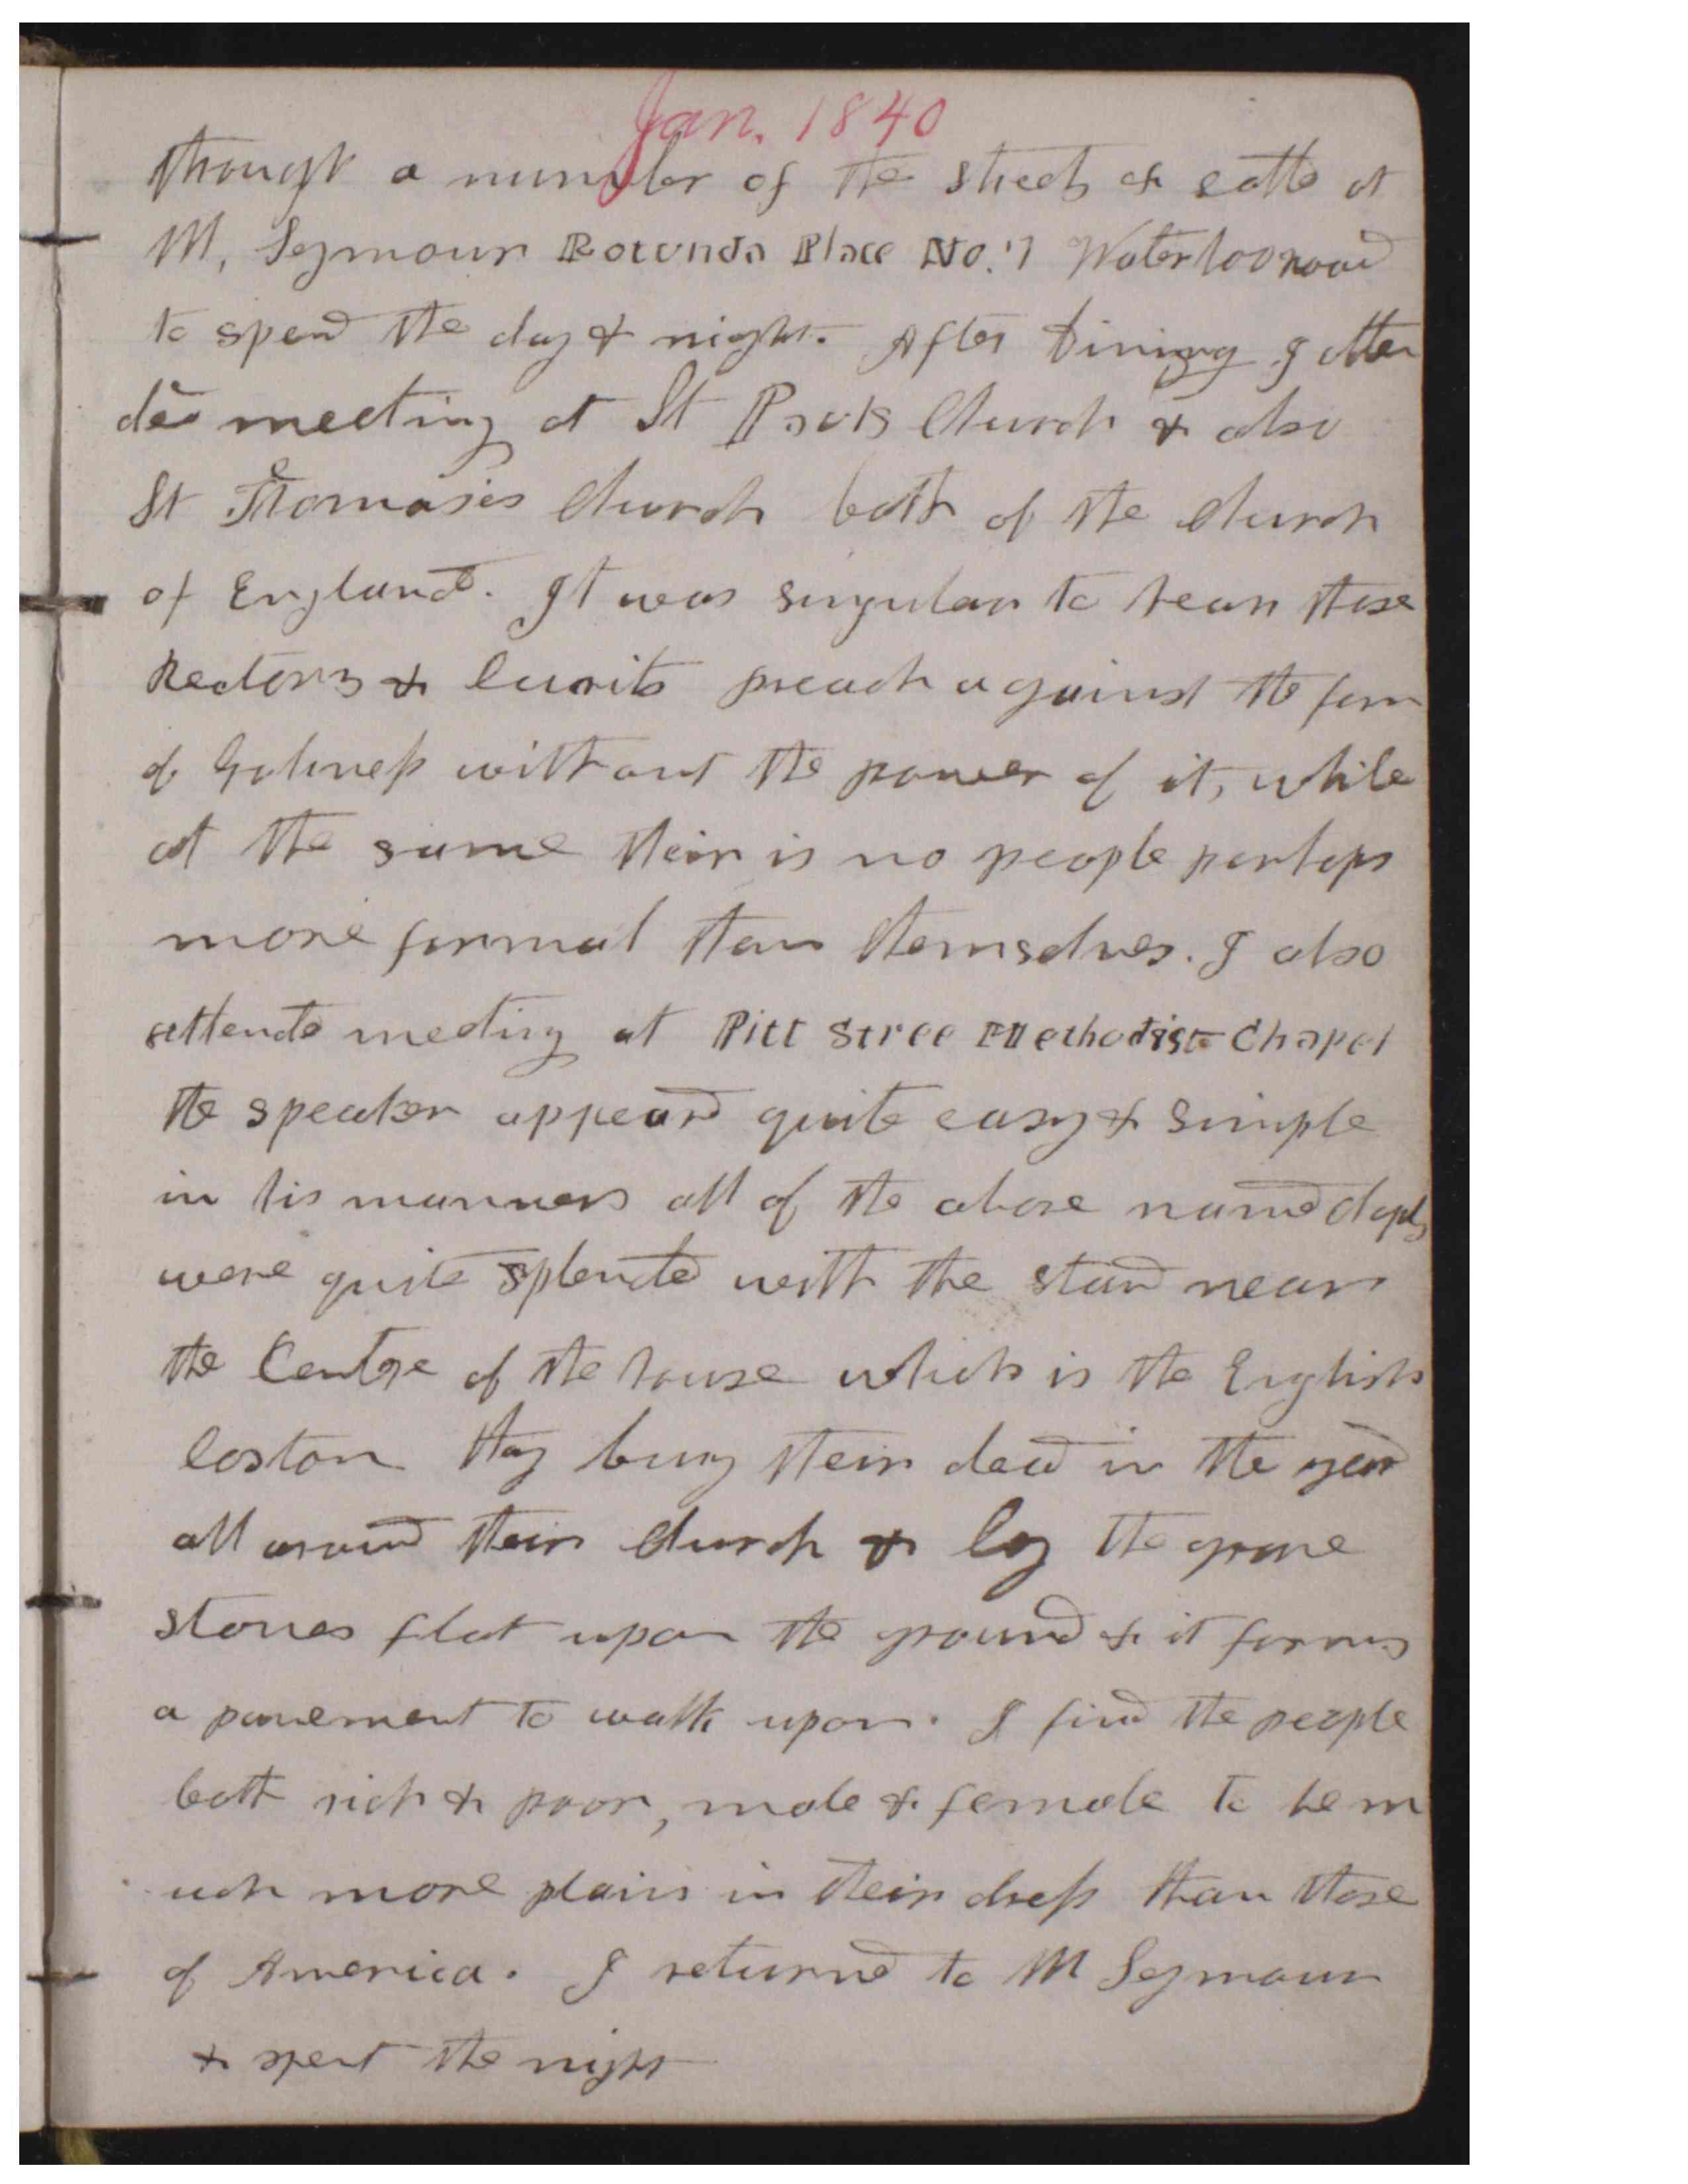 Jan. 1840
through a number of the streets & calld at
M, Seymour Rotunda Place No. 7 Waterloo road
to spend the day & night. After Dining I atten
ded meeting at St Pauls Church & also
St Thomases Church both of the Church
of England. It was singular to hear those
Rectors & Curits preach against the form
of Godliness without the power of it, while
at the same their is no people perhaps
more formal than themselves. I also
attended meeting at Pitt Stree Methodist Chapel
the speaker appeard quite easy & simple
in his manners all of the above named
were quite splended with the stand near
the Centre of the house which is the English
Costom they bury their dead in the yard
all around their Church & lay the grave
stones flat upon the ground & it forms
a pavement to walk upon. I find the people
both rich & poor, male & female to be m
uch more plain in their dress than those
of America. I returned to M Seymour
& spent the night